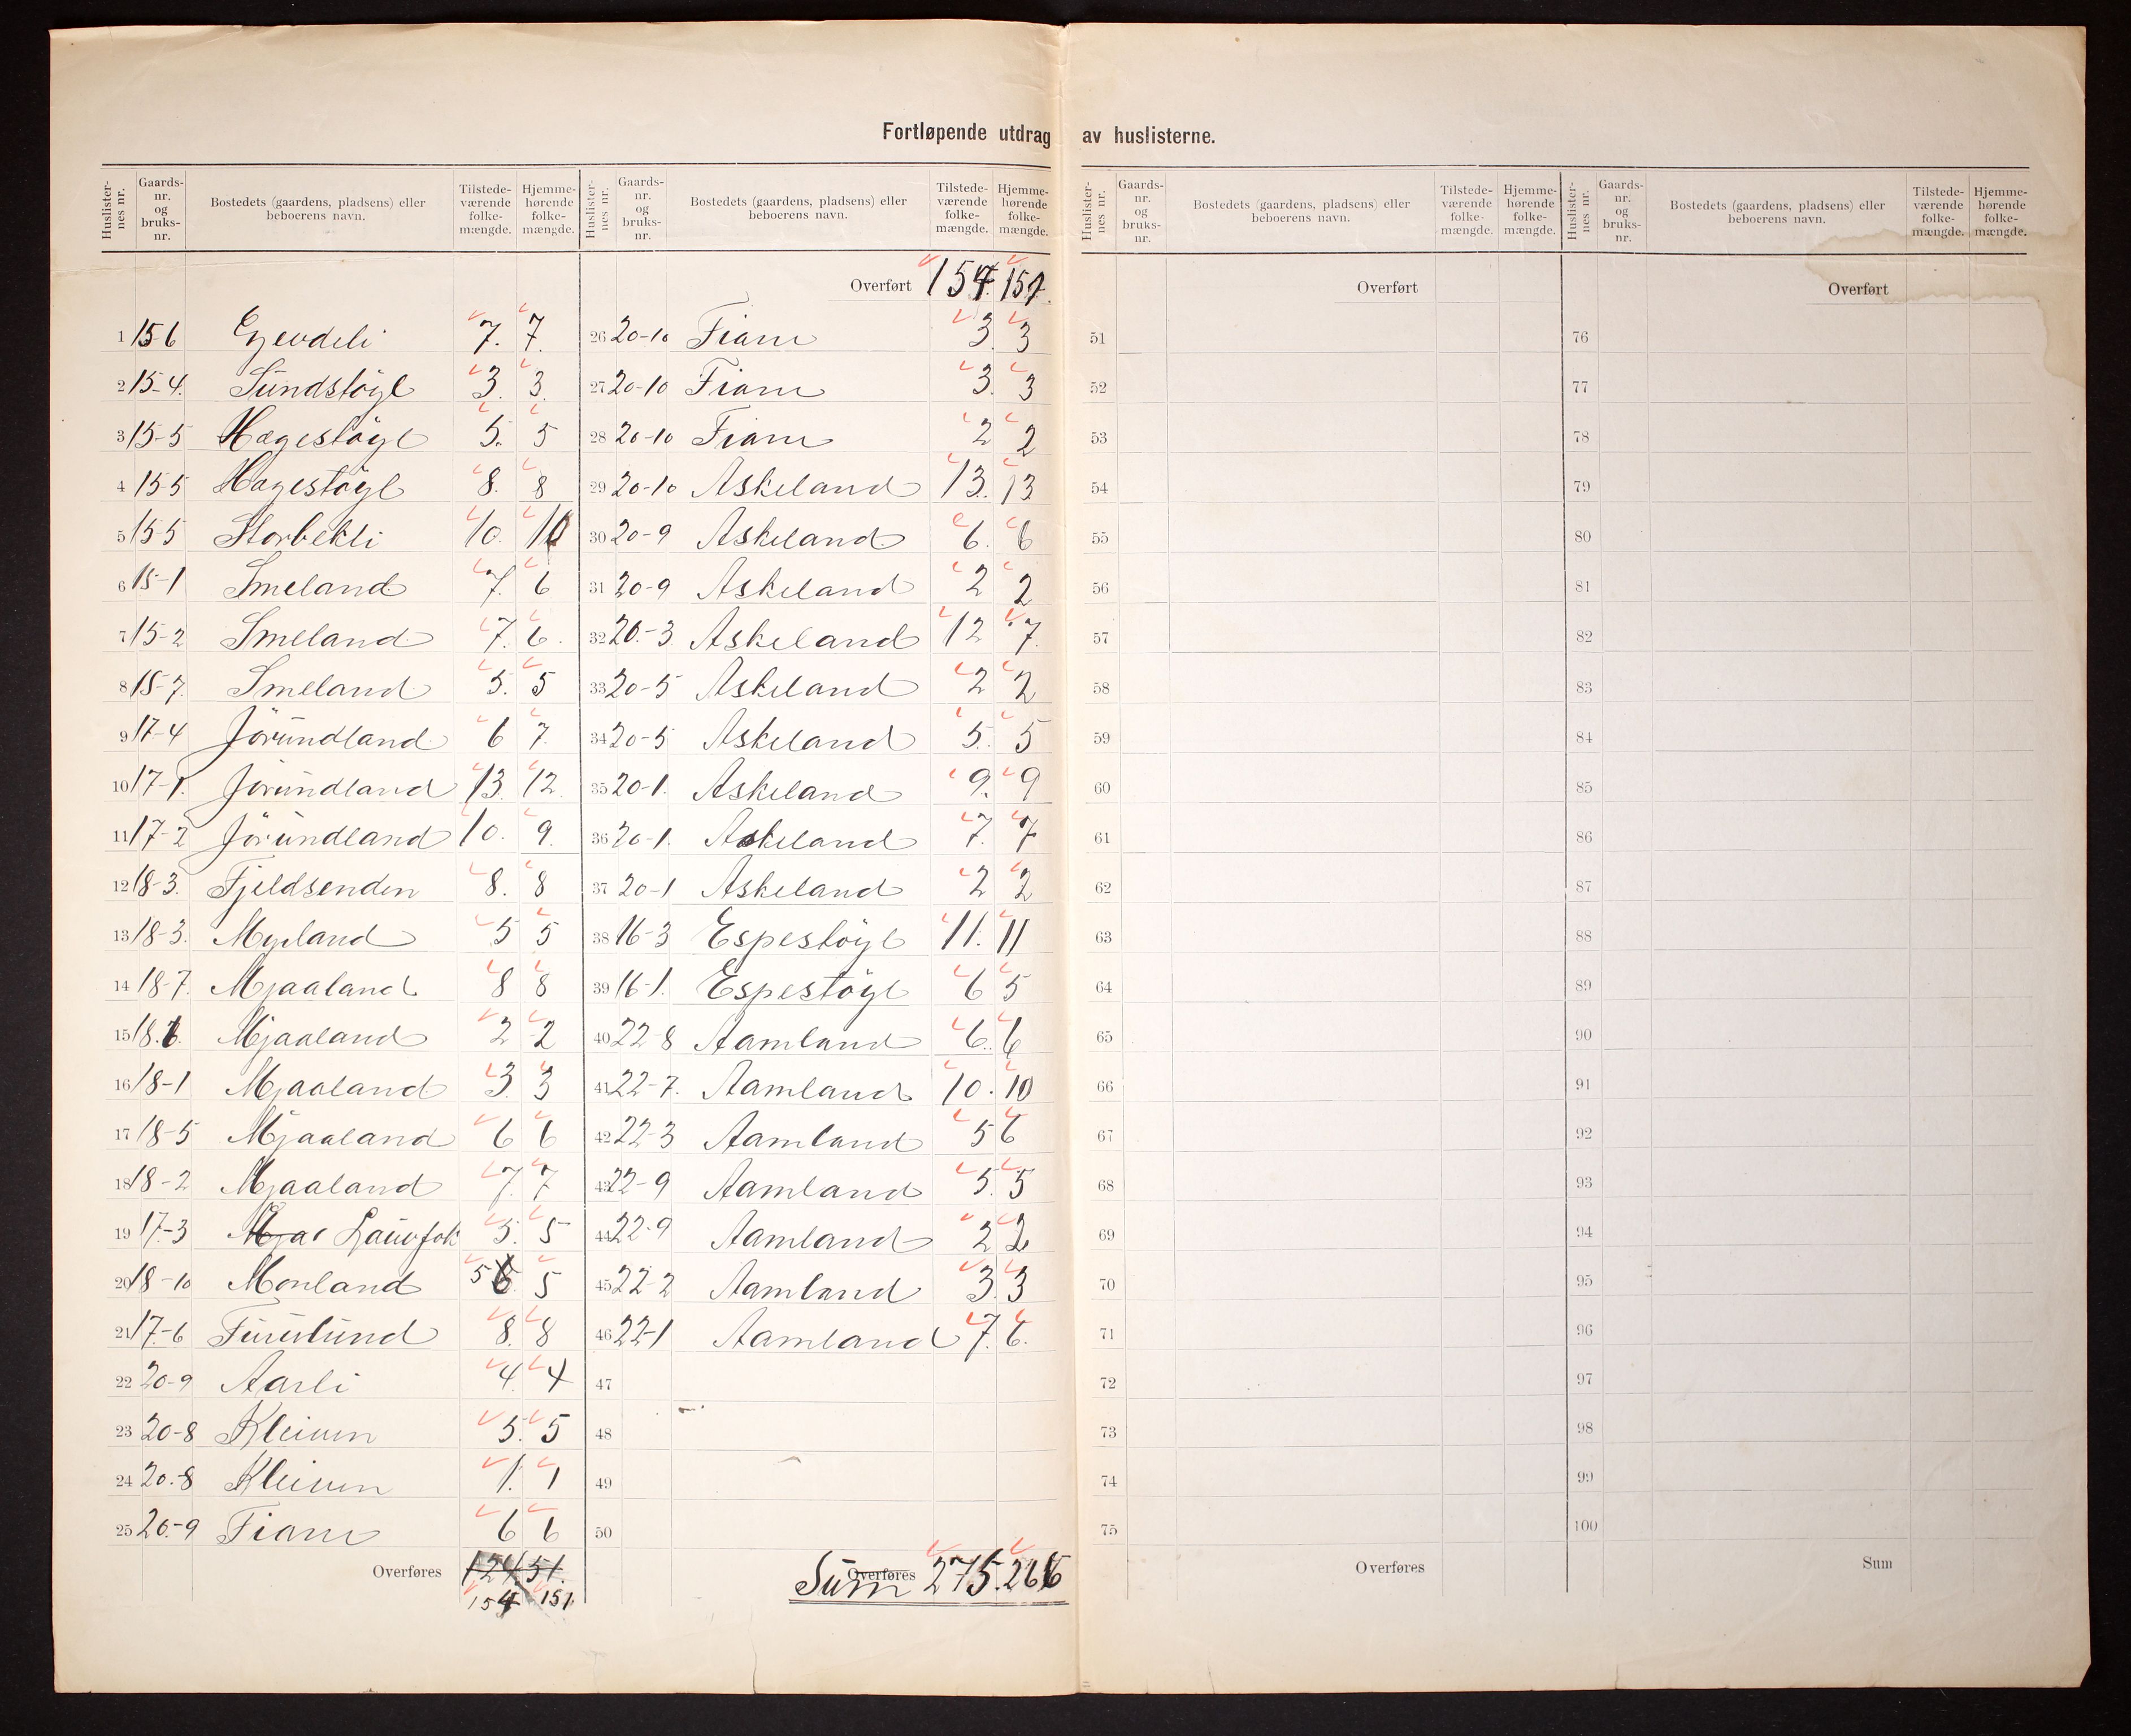 Fortløpende utdrag av huslisterne.
Huslister-nes nr. Gaards-nr. og bruks-nr. Bostedets (gaardens, pladsens) eller beboerens navn. Tilstede-værende folke-mængde. Hjemme-hørende folke-mængde.
1 15-6 Gjevdeli 7. 7.
2 15-4. Sundstøyl 3. 3.
3 15-5 Hægestøyl 5. 5
4 15-5 Hægestøyl 8. 8
5 15-5 Storbekli 10. 10
6 15-1 Smeland 7. 6
7 15-2 Smeland 7. 6.
8 15-7. Smeland 5. 5
9 17-4 Jørundland 6 7.
10 17-1. Jørundland 13. 12.
11 17-2 Jørundland 10. 9.
12 18-3. Fjeldsenden 8. 8
13 18-3. Myrland 5 5
14 18-7. Mjaaland 8 8
15 18.6. Mjaaland 2 2
16 18-1 Mjaaland 3. 3
17 18-5 Mjaaland 6 6
18 18-2 Mjaaland 7. 7
19 17-3 Mjaa 5. 5
20 18-10 Monland 5 6 5
21 17-6 Furulund 8. 8
22 20-9 Aarli 4. 4
23 20-8 Kleiven 5. 5
24 20.-8 Kleiven 1. 1
25 20.-9 Fiane 6 6
Overføres 124 151.
154 151.
Huslister-nes nr. Gaards-nr. og bruks-nr. Bostedets (gaardens, pladsens) eller beboerens navn. Tilstede-værende folke-mængde. Hjemme-hørende folke-mængde.
Overført 154. 151.
26 20-10 Fiane 3. 3
27 20-10 Fiane 3. 3
28 20-10 Fiane 2 2
29 20-10 Askeland 13. 13
30 20-9 Askeland 6. 6
31 20-9 Askeland 2 2
32 20.-3. Askeland 12 7.
33 20-5 Askeland 2 2
34 20-5 Askeland 5. 5
35 20-1. Askeland 9. 9
36 20-1. Askeland 7. 7
37 20-1 Askeland 2 2
38 16-3 Espestøyl 11. 11
39 16-1. Espestøyl 6 5
40 22-8 Aamland 6. 6
41 22-7. Aamland 10. 10
42 22-3 Aamland 5 6
43 22-9 Aamland 5. 5
44 22-9 Aamland 2 2
45 22-2 Aamland 3. 3
46 22-1 Aamland 7. 6.
47
48
49
50
Overføres Sum 275. 266
Huslister-nes nr. Gaards-nr. og bruks-nr. Bostedets (gaardens, pladsens) eller beboerens navn. Tilstede-værende folke-mængde. Hjemme-hørende folke-mængde.
Overført
51
52
53
54
55
56
57
58
59
60
61
62
63
64
65
66
67
68
69
70
71
72
73
74
75
Overføres
Huslister-nes nr. Gaards-nr. og bruks-nr. Bostedets (gaardens, pladsens) eller beboerens navn. Tilstede-værende folke-mængde. Hjemme-hørende folke-mængde.
Overført
76
77
78
79
80
81
82
83
84
85
86
87
88
89
90
91
92
93
94
95
96
97
98
99
100
Sum